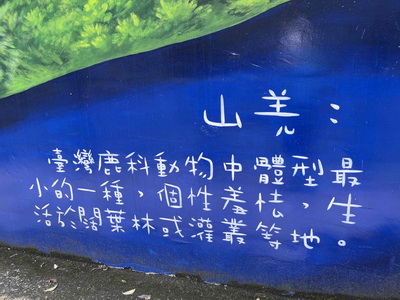 山羌：
臺灣鹿科動物中體型最
小的一種，個性羞怯，生
活於闊葉林或灌叢等地。